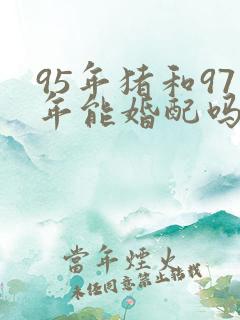 95年猪和97
年能婚配吗
當年煙火
未经同意禁止转载